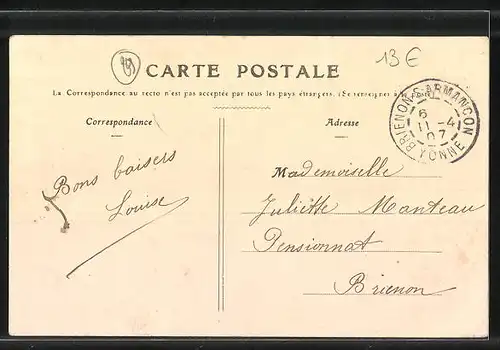 13 €
CARTE POSTALE
La Correspondance au recto n'est pas acceptée par tous les pays étrangers. (Se renseigner à la
BRIENON-S-ARMANÇON
6
11 -4
07
YONNE
Correspondance
Adresse
Bons baisers
Louise
Mademoiselle
Juliette Manteau
Pensionnat
Brienon